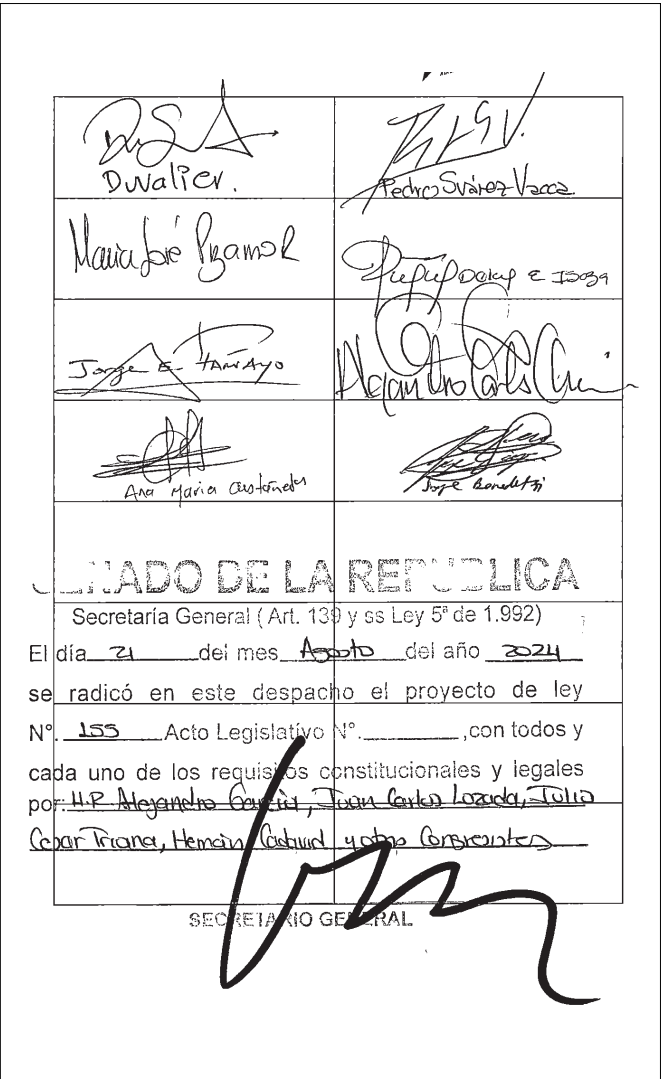 Duvalier.
Pedro Suárez Vacca
María José Pizarro R
E Isaza
Jorge E. Tamayo
Alejandro Carlos
Ana María Castañeda
Jorge Benedetti
SENADO DE LA REPUBLICA
Secretaría General ( Art. 139 y ss Ley 5ª de 1.992)
El día 21 del mes Agosto del año 2024
se radicó en este despacho el proyecto de ley
N°. 155 Acto Legislativo N°. ,con todos y
cada uno de los requisitos constitucionales y legales
por: H.R Alejandro García, Juan Carlos Lozada, Julio
Cesar Triana, Hernán Cadavid y otros Congresistas
SECRETARIO GENERAL